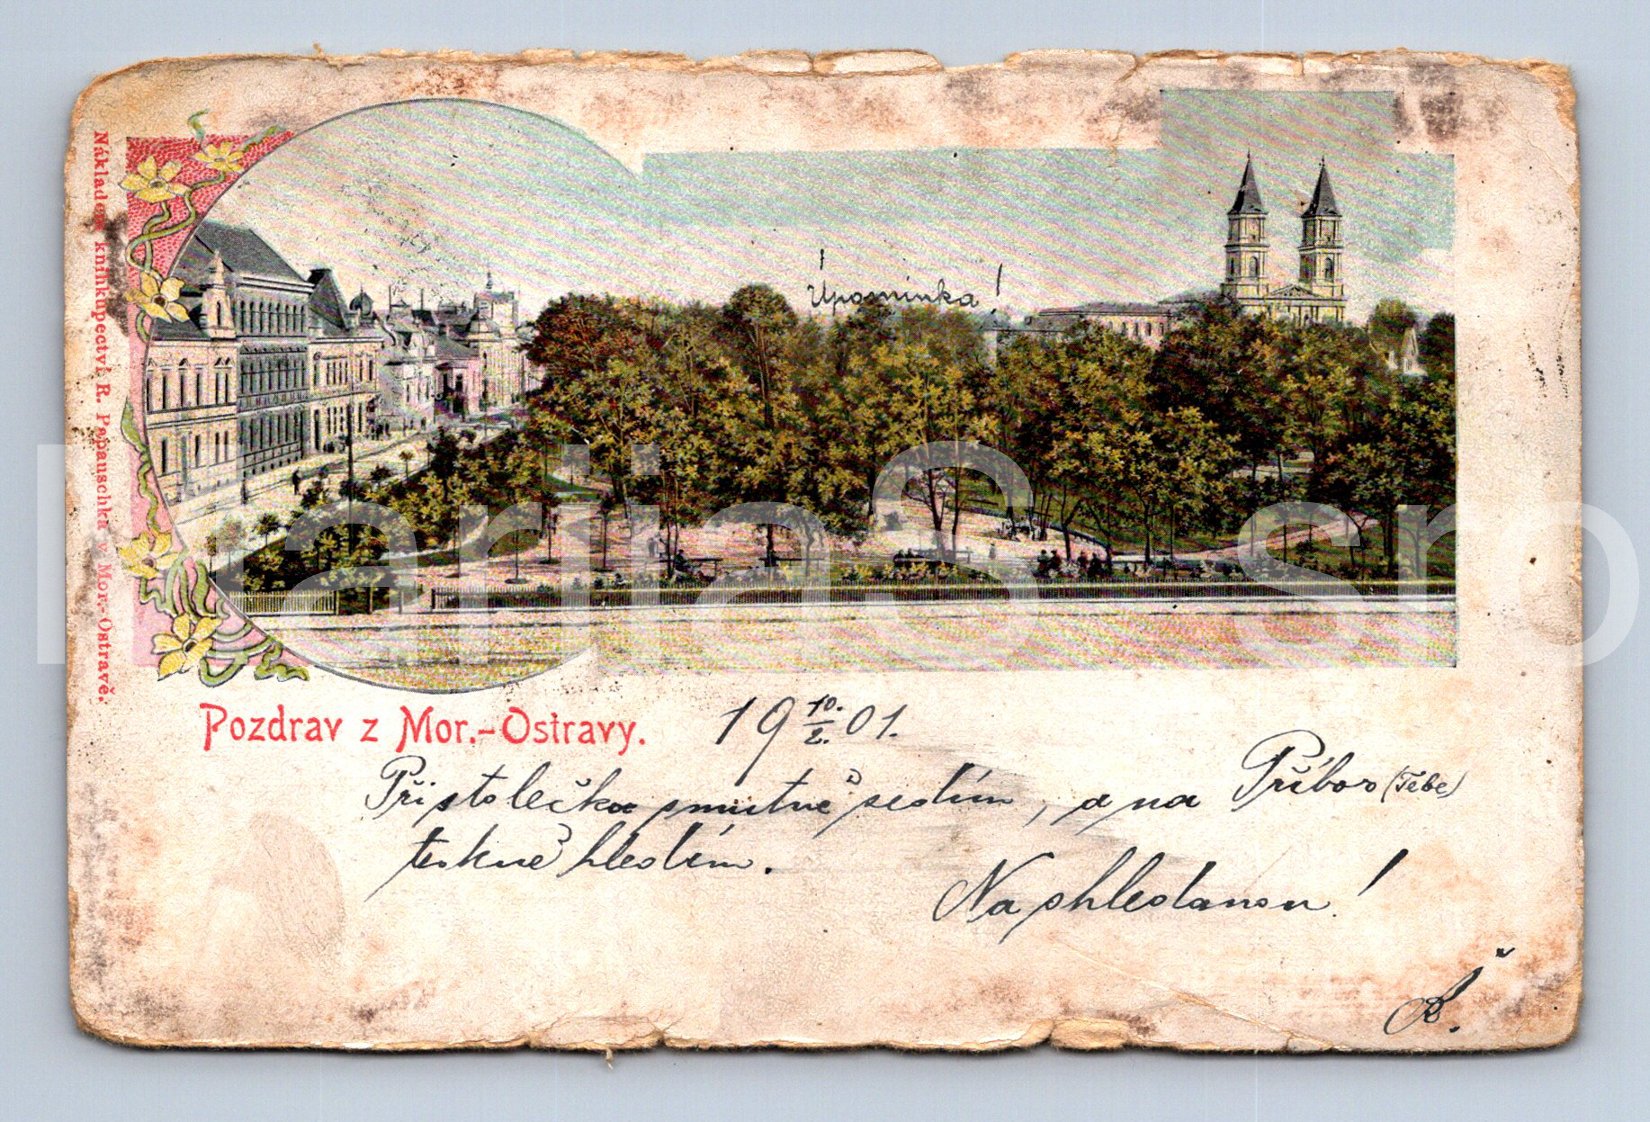 Úpomínka!
Nákladem knihkupectví R. Papauschka v Mor.-Ostravě.
Pozdrav z Mor.-Ostravy.
19 10./2. 01.
Při stolečku smutně sedím, a na Příbor (Tebe)
teskně hledím.
Na shledanou!
Š.
MartinS sro